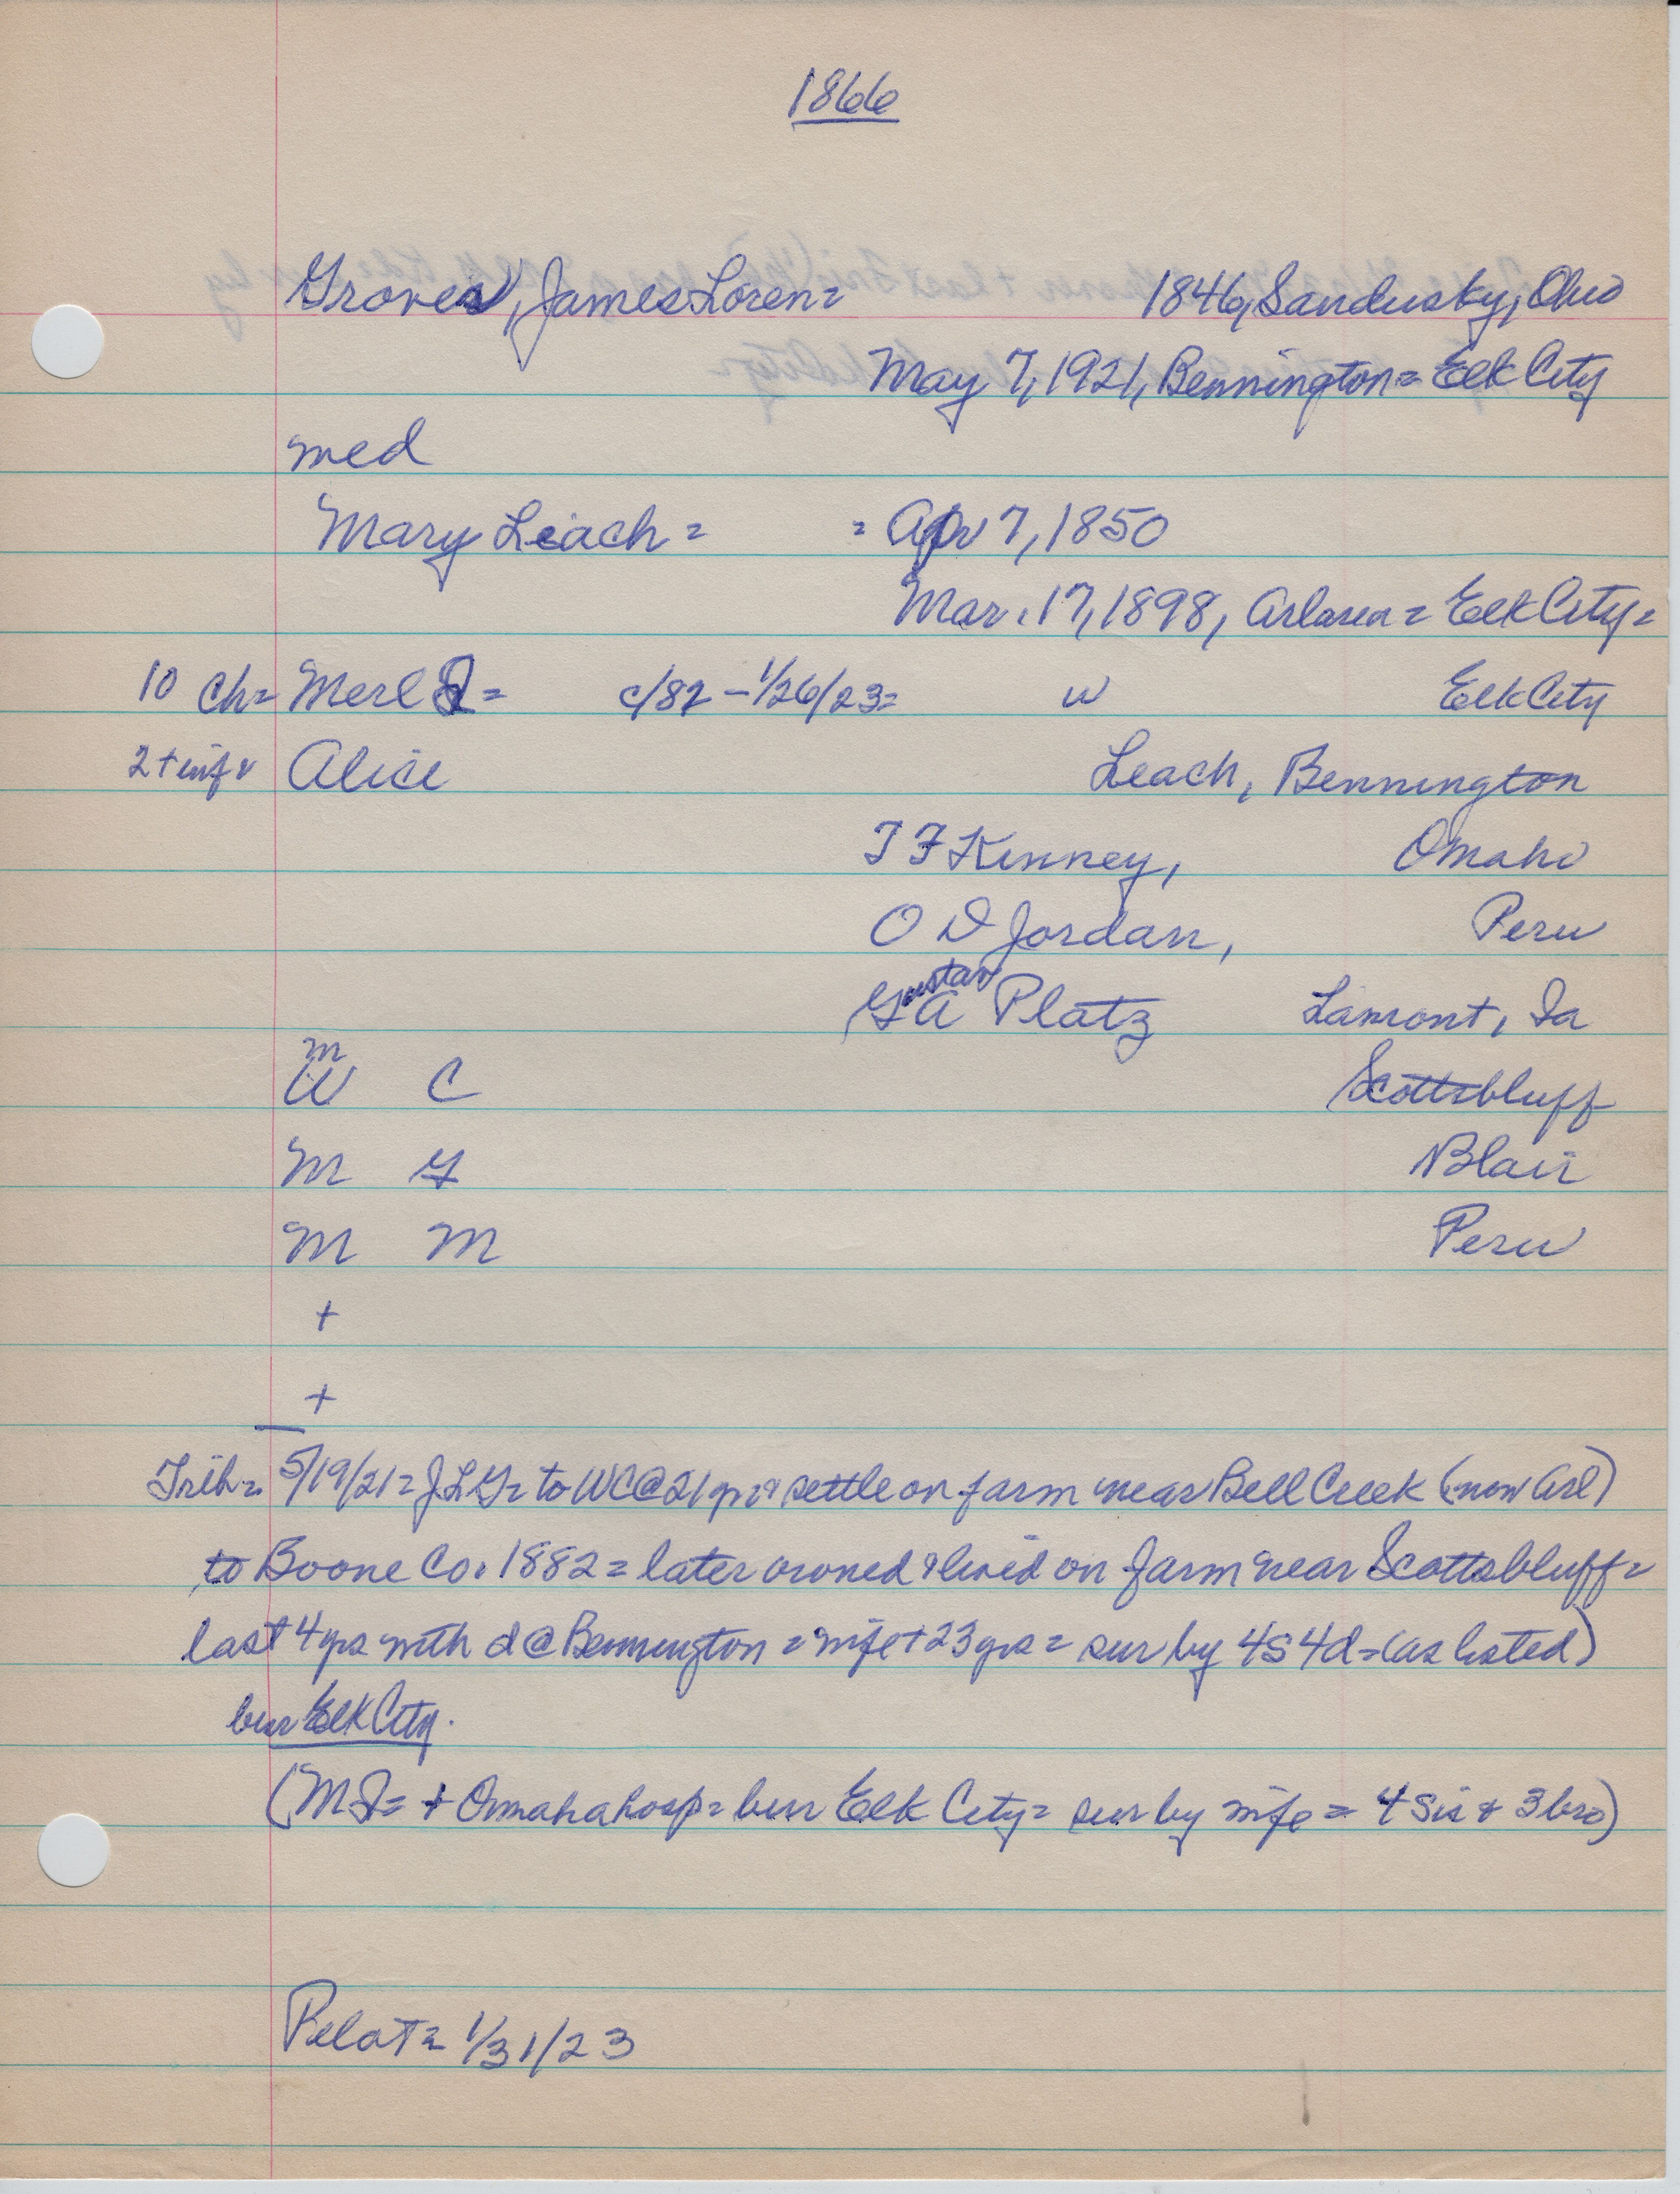 1866
Groves, James Loren = 1846, Sandusky, Ohio
May 7, 1921, Bennington = Elk City
med
Mary Leach = = Apr 7, 1850
Mar. 17, 1898, Arl area = Elk City =
10 ch = Merl I = c/82 – 1/26/23 = w Elk City
2 + inf & Alice Leach, Bennington
T F Kinney, Omaha
O D Jordan, Peru
Gustav
G A Platz Lamont, Ia
m
W C Scottsbluff
M G Blair
M M Peru
+
+
Trib = 5/19/21 = J L G = to WC @ 21 yrs & settle on farm near Bell Creek (now Arl)
to Boone Co. 1882 = later owned & lived on farm near Scottsbluff =
last 4 yrs with d @ Bennington = wife + 23 yrs = sur by 4s 4d – (as listed)
bur Elk City.
(M I = + Omaha hosp = bur Elk City = sur by wife = 4 sis & 3 bro)
Pilot = 1/31/23